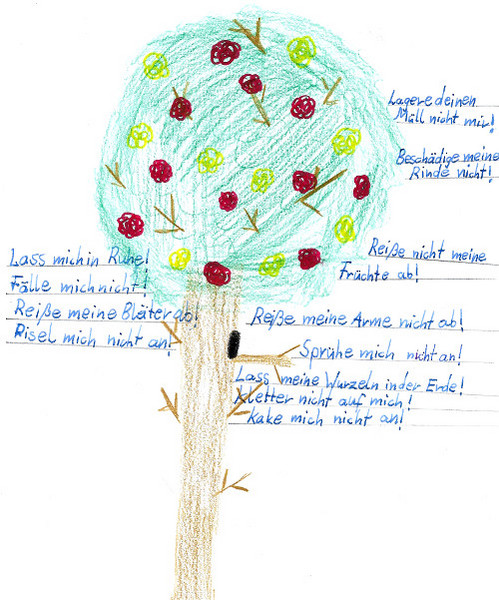 Lagere deinen
Müll nicht mir!
Beschädige meine
Rinde nicht!
Lass mich in Ruhe!
Fälle mich nicht!
Reiße meine Bläter ab!
Pisel mich nicht an!
Reiße nicht meine
Früchte ab!
Reiße meine Arme nicht ab!
Sprühe mich nicht an!
Lass meine Wurzeln in der Erde!
Kletter nicht auf mich!
Kake mich nicht an!